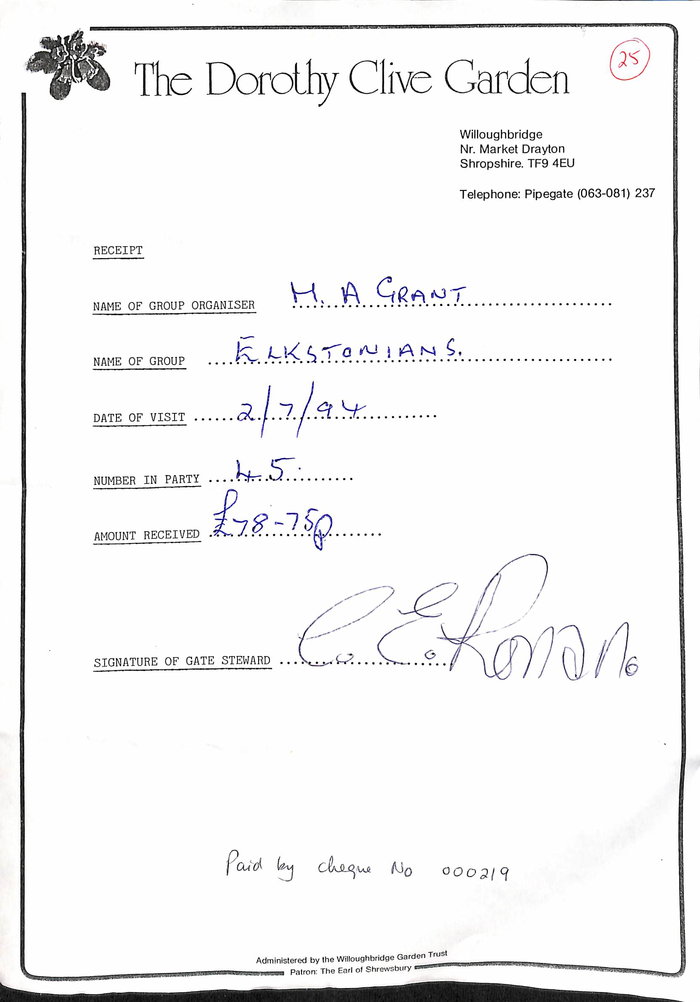 The Dorothy Clive Garden
25
Willoughbridge
Nr. Market Drayton
Shropshire. TF9 4EU
Telephone: Pipegate (063-081) 237
RECEIPT
NAME OF GROUP ORGANISER M. A GRANT
NAME OF GROUP ELKSTONIANS.
DATE OF VISIT 2/7/94
NUMBER IN PARTY 45
AMOUNT RECEIVED £78-75p
SIGNATURE OF GATE STEWARD C. E. Ronan.
Paid by cheque No 000219
Administered by the Willoughbridge Garden Trust
Patron: The Earl of Shrewsbury